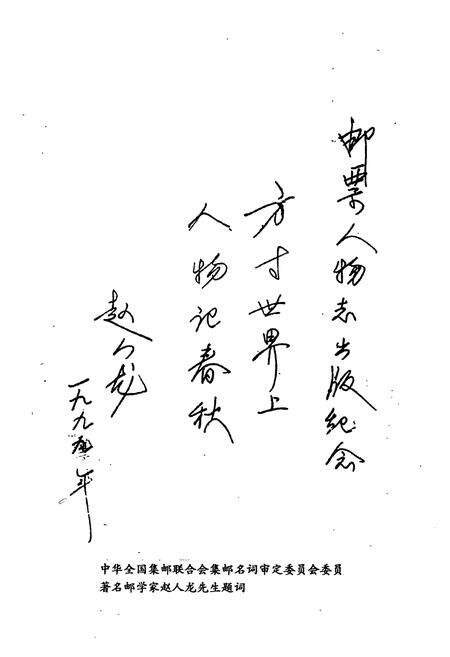 邮票人物志出版纪念
方寸世界上
人物记春秋
赵人龙
一九九五年
中华全国集邮联合会集邮名词审定委员会委员
著名邮学家赵人龙先生题词